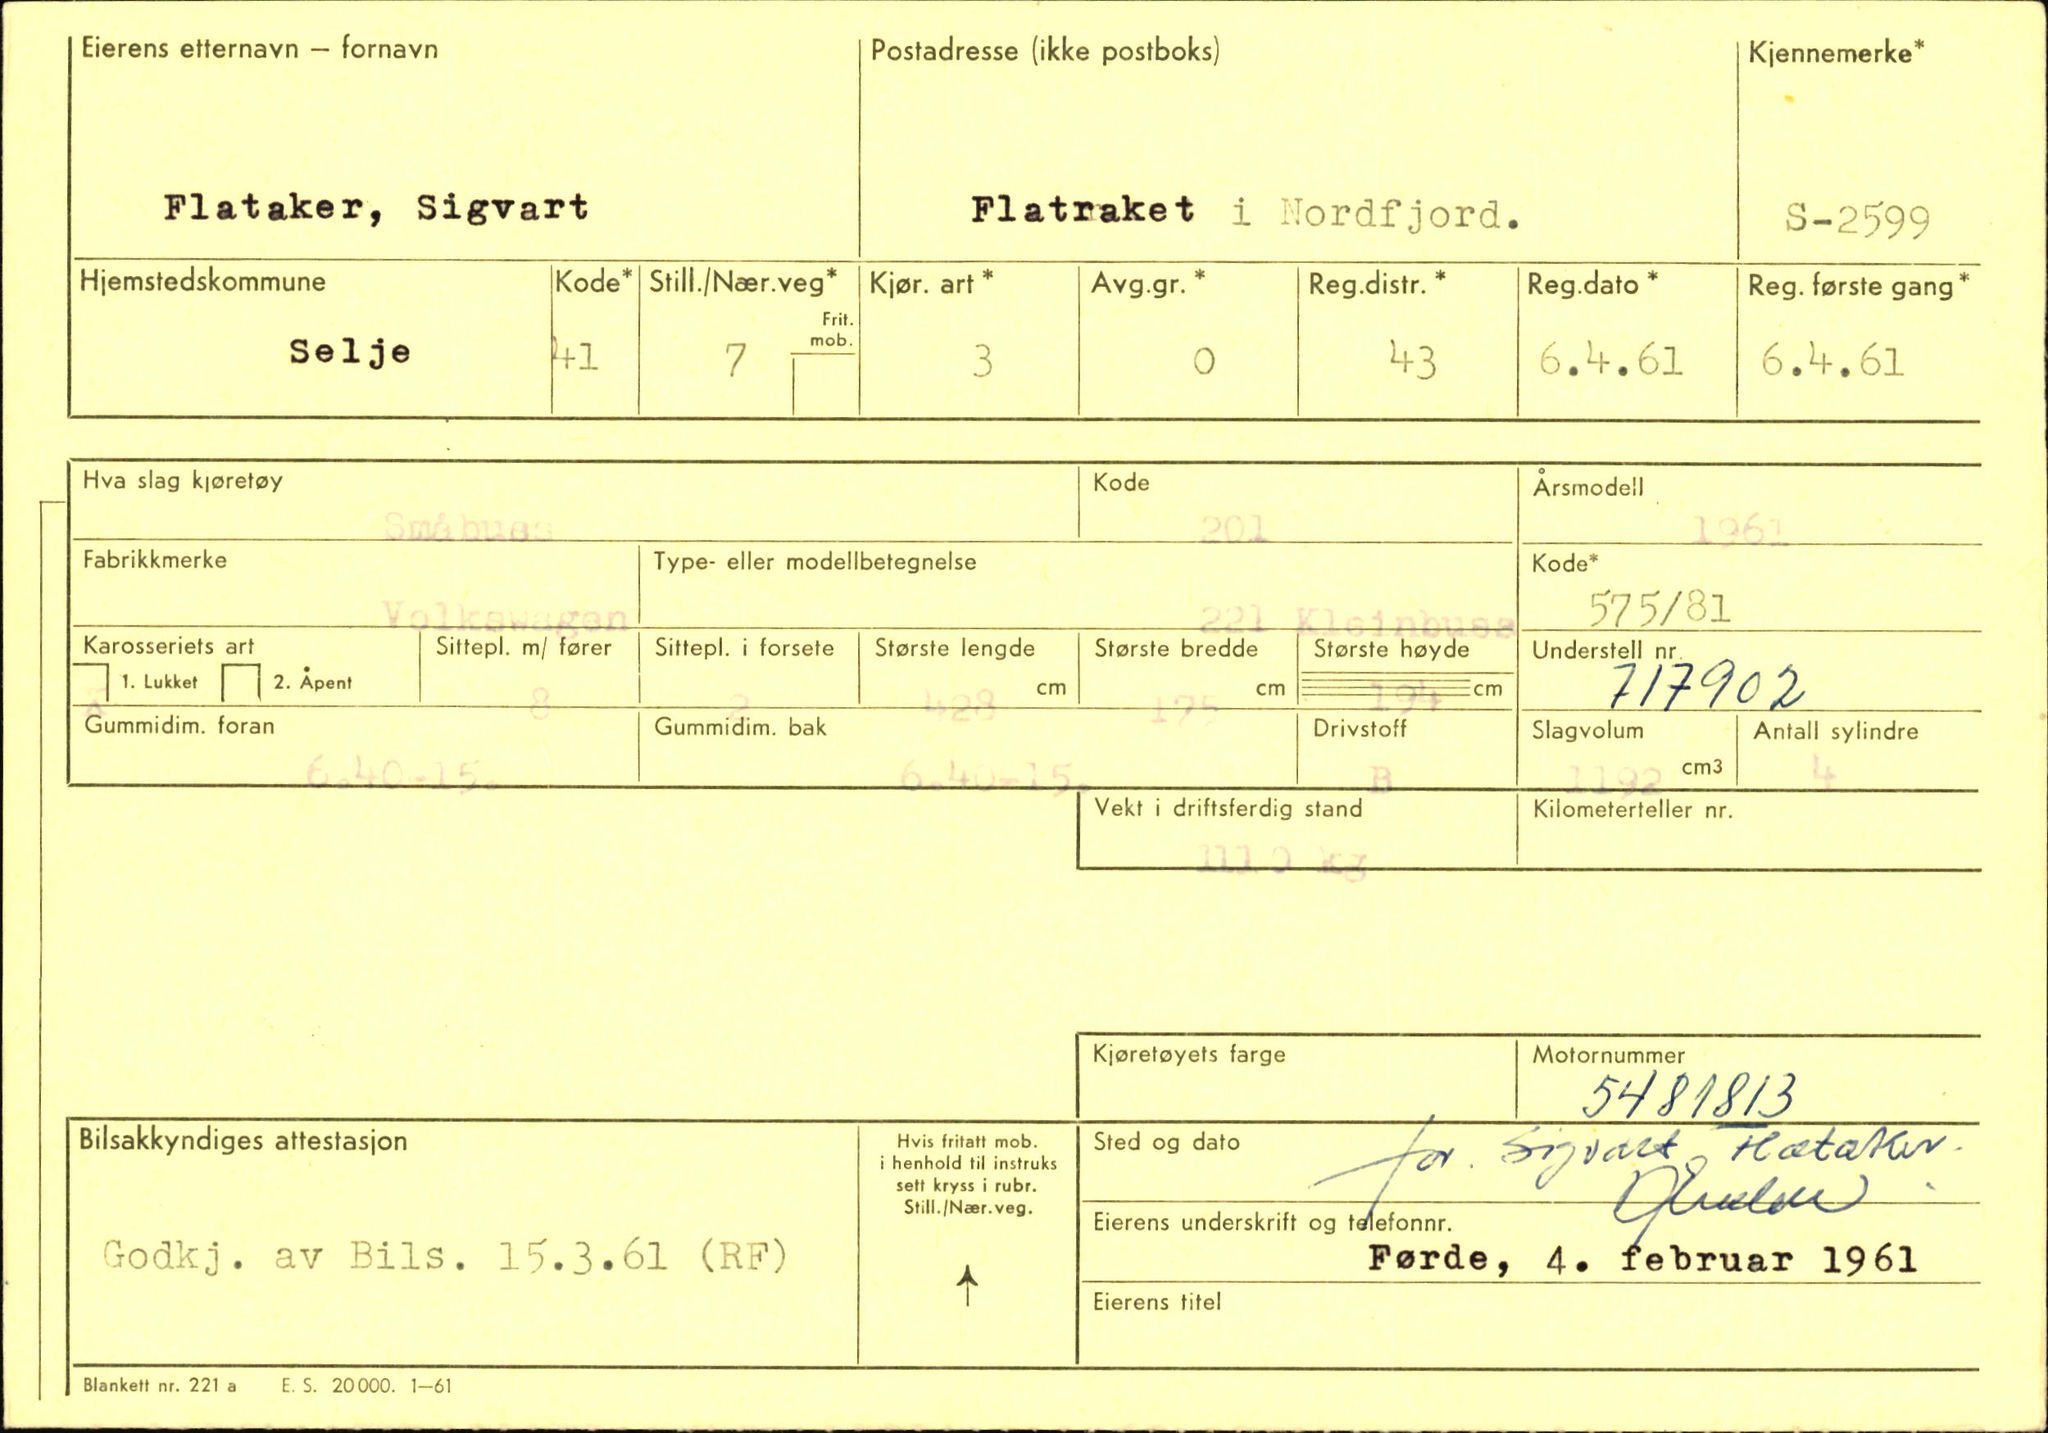 Eierens etternavn – fornavn
Postadresse (ikke postboks)
Kjennemerke*
Flataker, Sigvart
Flatraket i Nordfjord.
S-2599
Hjemstedskommune
Kode*
Still./Nær.veg*
Kjør. art*
Avg.gr.*
Reg.distr.*
Reg.dato*
Reg. første gang*
Frit.
mob.
Selje
41
7
3
0
43
6.4.61
6.4.61
Hva slag kjøretøy
Kode
Årsmodell
Småbuss
201
1961
Fabrikkmerke
Type- eller modellbetegnelse
Kode*
Volkswagen
221 Kleinbuss
575/81
Karosseriets art
Sittepl. m/ fører
Sittepl. i forsete
Største lengde
Største bredde
Største høyde
Understell nr.
1. Lukket
2. Åpent
8
2
428 cm
175 cm
194 cm
717902
Gummidim. foran
Gummidim. bak
Drivstoff
Slagvolum
Antall sylindre
6.40-15.
6.40-15.
B
1192 cm3
4
Vekt i driftsferdig stand
Kilometerteller nr.
1110 kg
Kjøretøyets farge
Motornummer
5481813
Bilsakkyndiges attestasjon
Hvis fritatt mob.
i henhold til instruks
sett kryss i rubr.
Still./Nær.veg.
Sted og dato
for. Sigvart Flataker.
Eierens underskrift og telefonnr.
Godkj. av Bils. 15.3.61 (RF)
Førde, 4. februar 1961
Eierens titel
Blankett nr. 221 a E. S. 20 000. 1–61